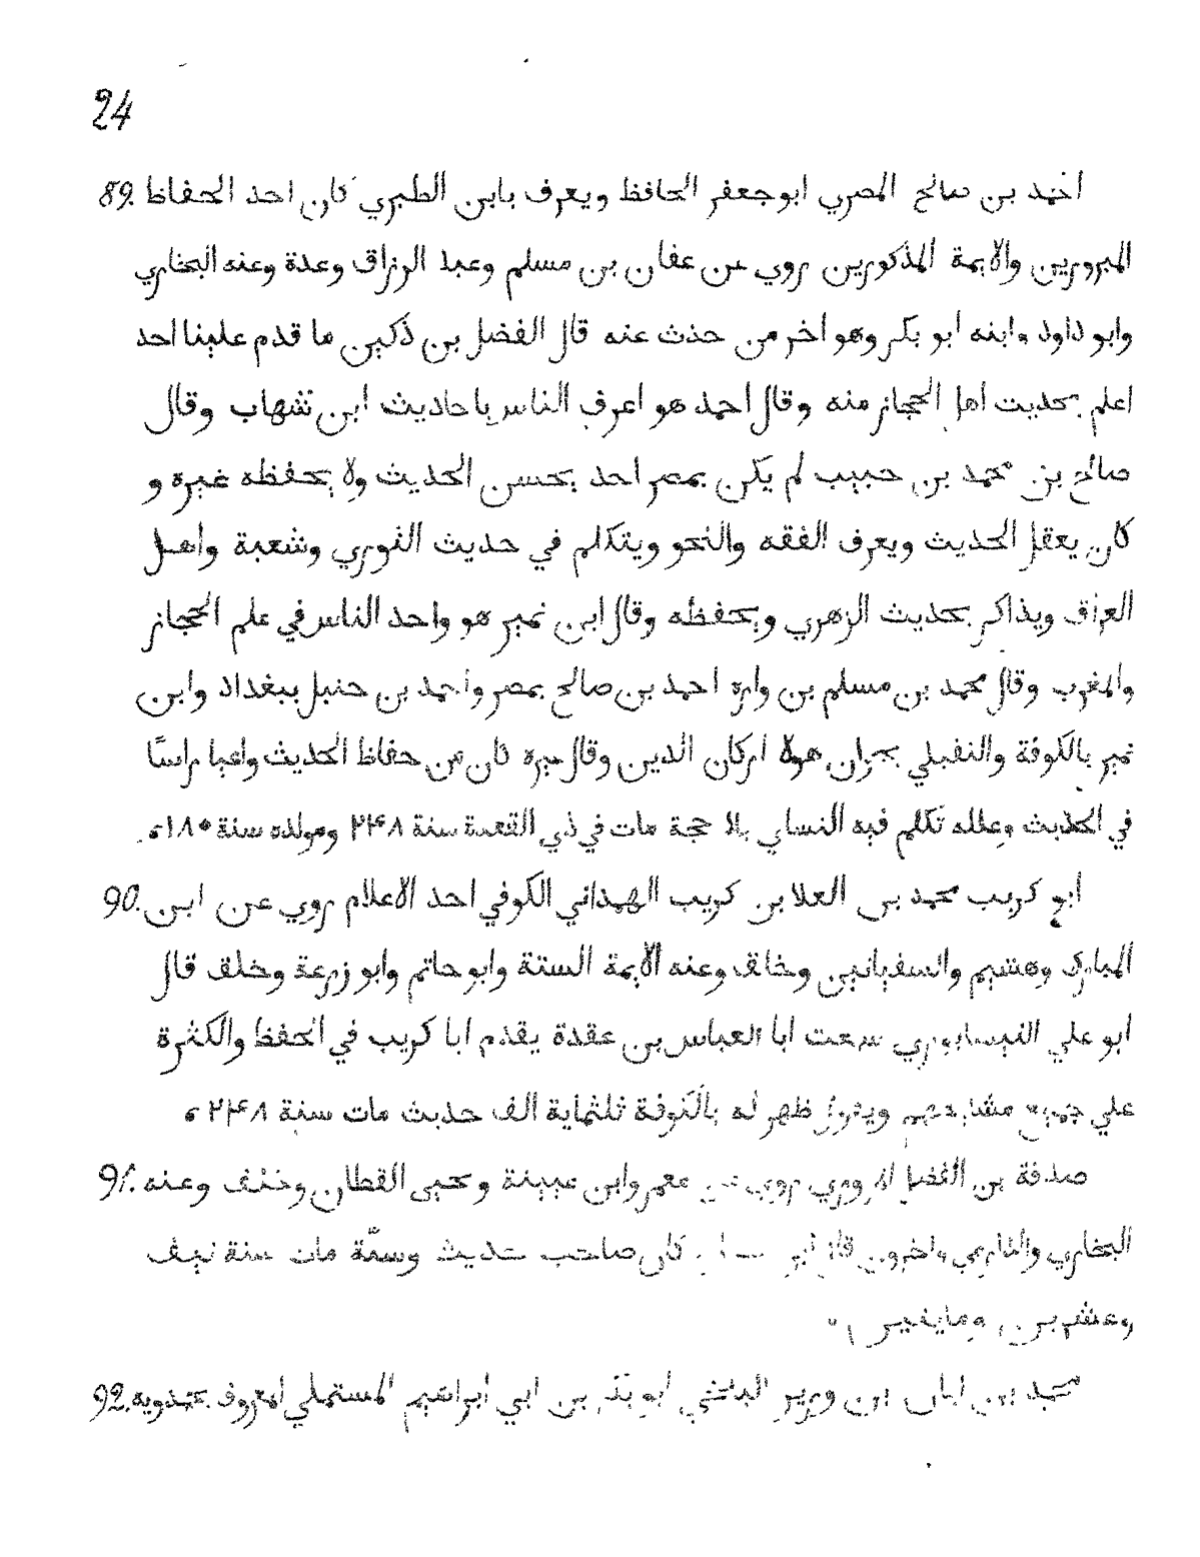 24
احمد بن صالح المصري ابو جعفر الحافظ ويعرف بابن الطبري كان احد الحفاظ .89
المبرورين والايمة المذكورين روي عن عفان بن مسلم وعبد الرزاق وعدة وعنه البخاري
وابو داود وابنه ابو بكر وهو اخر من حدث عنه قال الفضل بن دكين ما قدم علينا احد
اعلم بحديث اهل الحجاز منه وقال احمد هو اعرف الناس باحاديث ابن شهاب وقال
صالح بن محمد بن حبيب لم يكن بمصر احد يحسن الحديث ولا يحفظه غيره و
كان يعقل الحديث ويعرف الفقه والنحو ويتكلم في حديث الثوري وشعبة واهل
العراق ويذاكر بحديث الزهري ويحفظه وقال ابن نمير هو واحد الناس في علم الحجاز
والمغرب وقال محمد بن مسلم بن واره احمد بن صالح بمصر واحمد بن حنبل ببغداد وابن
نمير بالكوفة والنفيلي بحران هولا اركان الدين وقال كان من حفاظ الحديث واعيا راسًا
في الحديث وعلله تكلم فيه النساي بلا حجة مات في ذي القعدة سنة ۲۴۸ ومولده سنة
ابو كريب محمد بن العلا بن كريب الهمداني الكوفي احد الاعلام روي عن ابن .90
المبارك وهشيم والسفيانين وخلق وعنه الايمة الستة وابو حاتم وابو زرعة وخلق قال
ابو علي النيسابوري سمعت ابا العباس بن عقدة يقدم ابا كريب في الحفظ والكثرة
علي جميع مشايخهم ويقول ظهر له بالكوفة ثلثماية الف حديث مات سنة ۲۴۸
صدقة بن الفضل المروزي روي عن معمر وابن عيينة ويحيى القطان وخلف وعنه .91
البخاري والدارمي واخرون قال كان صاحب حديث وسنّة مات سنة نيف
وعشرين ومايتين
محمد بن ابان بن وزير البلخي ابو بكر بن ابي ابراهيم المستملي المعروف بحمدويه .92